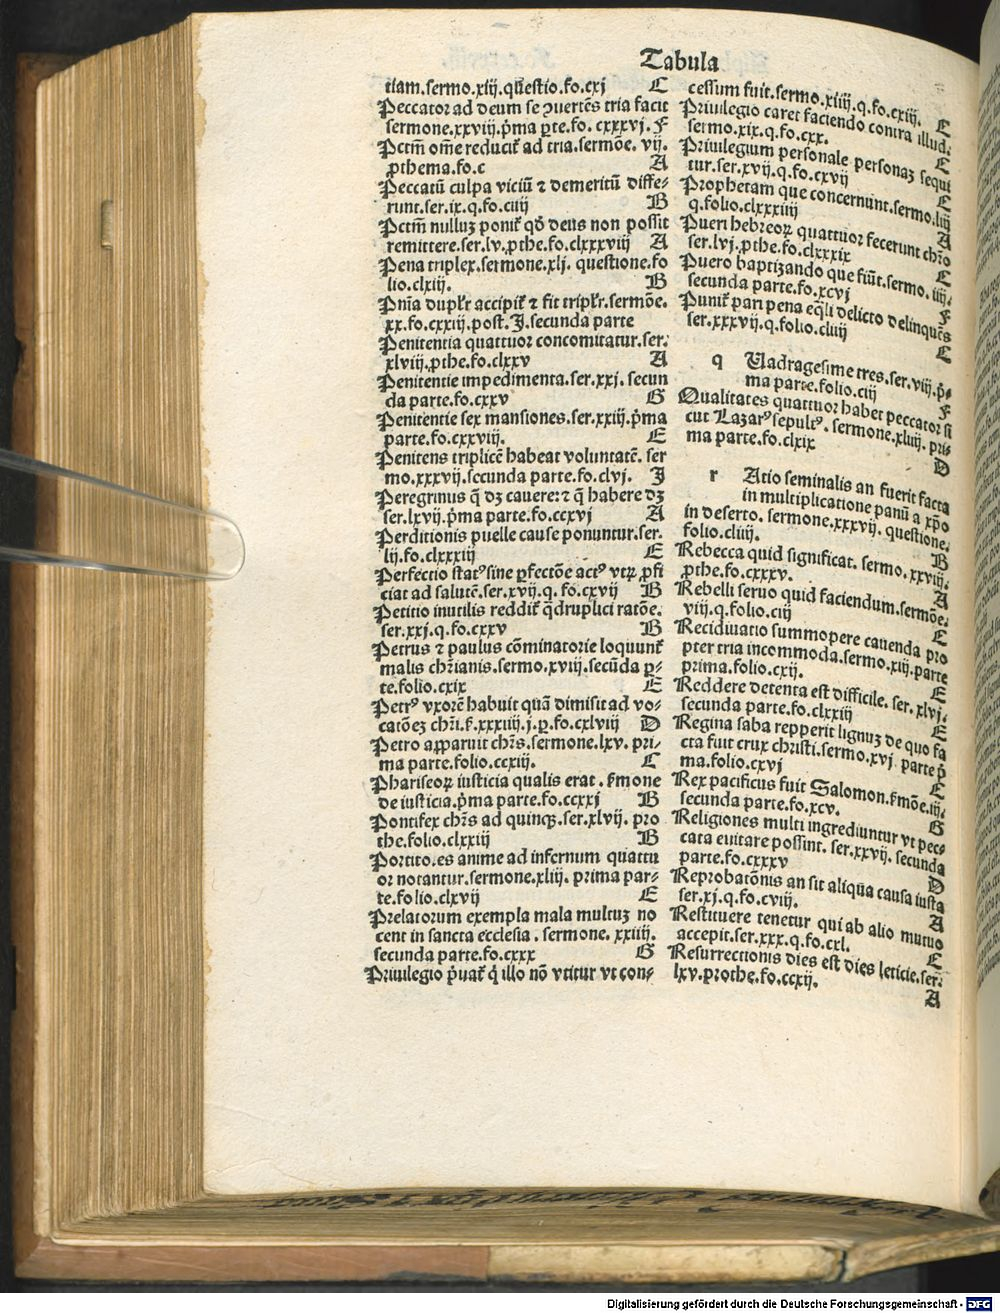 Tabula
tiam.sermo.xiij.questio.fo.cxj C
Peccator ad deum se ꝯuertēs tria facit
sermone.xxviij.p̄ma ꝑte.fo.cxxxvj. F
Pctm̄ om̄e reducit̄ ad tria.sermōe. vij.
ꝓthema.fo.c A
Peccatū culpa viciū ⁊ demeritū diffe-
runt.ser.ix.q.fo.ciiij B
Pctm̄ nulluꝫ ponit̄ qḋ deus non possit
remittere.ser.lv.ꝓthe.fo.clxxxviij A
Pena triplex.sermone.xlj. questione.fo
lio.clxiij. B
Pn̄ia duplr̄ accipit̄ ⁊ fit triplr̄.sermōe.
xx.fo.cxxiij.post.J.secunda parte
Penitentia quattuor concomitatur.ser.
xlviij.ꝓthe.fo.clxxv A
Penitentie impedimenta.ser.xxj. secun
da parte.fo.cxxv G
Penitentie sex mansiones.ser.xxiij.p̄ma
parte.fo.cxxviij. E
Penitens triplicē habeat voluntatē. ser
mo.xxxvij.secunda parte.fo.clvj. J
Peregrinus q̄ dꝫ cauere:⁊ q̄ habere dꝫ
ser.lxvij.p̄ma parte.fo.ccxvj A
Perditionis puelle cause ponuntur.ser.
lij.fo.clxxxiij E
Perfectio statꝰ sine ꝑfectōe actꝰ vtꝝ ꝓfi
ciat ad salutē.ser.xvij.q. fo.cxvij B
Petitio inutilis reddit̄ q̄druplici ratōe.
ser.xxj.q.fo.cxxv B
Petrus ⁊ paulus cōminatorie loquunt̄
malis chr̄ianis.sermo.xviij.secūda ꝑ-
te.folio.cxix E
Petrꝰ vxorē habuit quā dimisit ad vo-
catōeꝫ chr̄i.ẜ.xxxiiij.j.ꝑ.fo.cxlviij D
Petro apparuit chr̄s.sermone.lxv. pri-
ma parte.folio.ccxiij. C
Phariseoꝝ iusticia qualis erat. ẜmone
de iusticia.p̄ma parte.fo.ccxxj B
Pontifex chr̄s ad quinqꝫ.ser.xlvij. pro
the.folio.clxxiij B
Portito.es anime ad infernum quattu
or notantur.sermone.xliij. prima par-
te.folio.clxvij E
Prelatorum exempla mala multuꝫ no
cent in sancta ecclesia. sermone. xxiiij.
secunda parte.fo.cxxx G
Priuilegio p̄uat̄ q̇ illo nō vtitur vt con-
cessum fuit.sermo.xiiij.q.fo.cxiij. C
Priuilegio caret faciendo contra illud.
sermo.xix.q.fo.cxx. E
Priuilegium personale personaꝫ sequi
tur.ser.xvij.q.fo.cxvij E
Prophetam que concernunt.sermo.liij
q.folio.clxxxiiij A
Pueri hebreoꝝ quattuor fecerunt chr̄o
ser.lvj.ꝓthe.fo.clxxxix C
Puero baptizando que fiūt.sermo.iij.
secunda parte.fo.xcvj F
Punit̄ pari pena eq̄li delicto delinquēs
ser.xxxvij.q.folio.cliiij C
q Uadragesime tres.ser.viij.p̄-
ma parte.folio.ciij F
Qualitates quattuor habet peccator si
cut Lazarꝰ sepultꝰ. sermone.xliij. pri-
ma parte.fo.clxix D
r Atio seminalis an fuerit facta
in multiplicatione panū a xp̄o
in deserto. sermone.xxxvij. questione.
folio.cliiij. B
Rebecca quid significat. sermo.xxviij.
ꝓthe.fo.cxxxv. A
Rebelli seruo quid faciendum.sermōe.
viij.q.folio.ciij E
Recidiuatio summopere cauenda pro
pter tria incommoda.sermo.xij.parte
prima.folio.cxij. E
Reddere detenta est difficile. ser.xlvj.
secunda parte.fo.clxxiij E
Regina saba repperit lignuꝫ de quo fa
cta fuit crux christi.sermo.xvj parte p̄
ma.folio.cxvj E
Rex pacificus fuit Salomon.ẜmōe.iij.
secunda parte.fo.xcv. G
Religiones multi ingrediuntur vt pec-
cata euitare possint. ser.xxvij. secunda
parte.fo.cxxxv D
Reprobatōnis an sit aliqua causa iusta
ser.xj.q.fo.cviij. A
Restituere tenetur qui ab alio mutuo
accepit.ser.xxx.q.fo.cxl. E
Resurrectionis dies est dies leticie.ser.
lxv.prothe.fo.ccxij. A
Digitalisierung gefördert durch die Deutsche Forschungsgemeinschaft - DFG